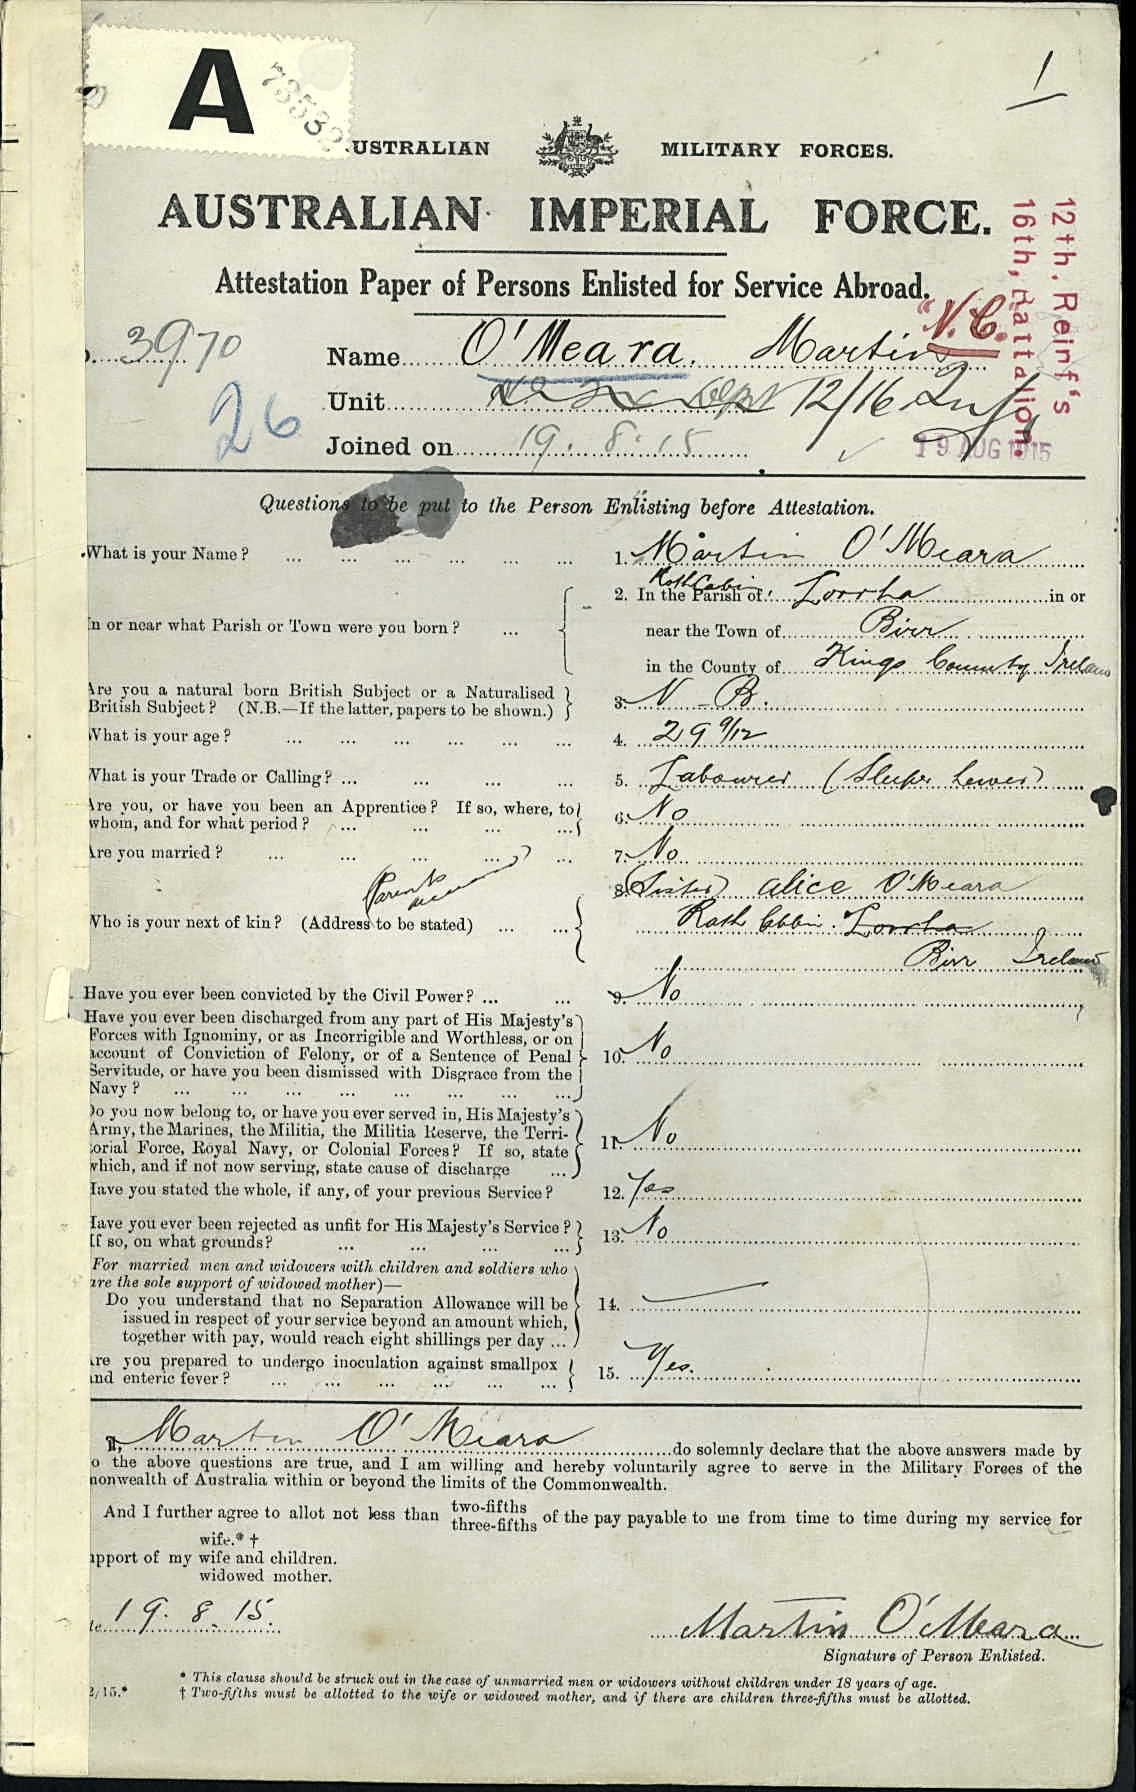 A
73532
1
AUSTRALIAN MILITARY FORCES.
AUSTRALIAN IMPERIAL FORCE.
12th. Reinf's
16th, Battalion.
Attestation Paper of Persons Enlisted for Service Abroad.
"V.C."
3970 Name O'Meara. Martin
26 Unit 12/16 Inf
Joined on 19. 8. 15
19 AUG 1915
Questions to be put to the Person Enlisting before Attestation.
What is your Name? ... 1. Martin O'Meara
Rath Cabin
2. In the Parish of Lorrha in or
In or near what Parish or Town were you born? ... near the Town of Birr
in the County of Kings County Ireland
Are you a natural born British Subject or a Naturalised
British Subject? (N.B.—If the latter, papers to be shown.) 3. N-B.
What is your age? ... 4. 29 9/12
What is your Trade or Calling? ... 5. Labourer (Sleeper hewer)
Are you, or have you been an Apprentice? If so, where, to
whom, and for what period? ... 6. No
Are you married? ... 7. No
Parents
8. (Sister) Alice O'Meara
Who is your next of kin? (Address to be stated) ... Rath Cabin. Lorrha
Birr Ireland
Have you ever been convicted by the Civil Power? ... 9. No
Have you ever been discharged from any part of His Majesty's
Forces with Ignominy, or as Incorrigible and Worthless, or on
account of Conviction of Felony, or of a Sentence of Penal 10. No
Servitude, or have you been dismissed with Disgrace from the
Navy? ...
Do you now belong to, or have you ever served in, His Majesty's
Army, the Marines, the Militia, the Militia Reserve, the Terri-
torial Force, Royal Navy, or Colonial Forces? If so, state 11. No
which, and if not now serving, state cause of discharge ...
Have you stated the whole, if any, of your previous Service? 12. Yes
Have you ever been rejected as unfit for His Majesty's Service?
If so, on what grounds? ... 13. No
(For married men and widowers with children and soldiers who
are the sole support of widowed mother)—
Do you understand that no Separation Allowance will be 14.
issued in respect of your service beyond an amount which,
together with pay, would reach eight shillings per day ...
Are you prepared to undergo inoculation against smallpox
and enteric fever? ... 15. Yes.
I, Martin O'Meara do solemnly declare that the above answers made by
o the above questions are true, and I am willing and hereby voluntarily agree to serve in the Military Forces of the
monwealth of Australia within or beyond the limits of the Commonwealth.
And I further agree to allot not less than two-fifths three-fifths of the pay payable to me from time to time during my service for
wife.* †
upport of my wife and children.
widowed mother.
19. 8. 15. Martin O'Meara
Signature of Person Enlisted.
* This clause should be struck out in the case of unmarried men or widowers without children under 18 years of age.
2/15.* † Two-fifths must be allotted to the wife or widowed mother, and if there are children three-fifths must be allotted.